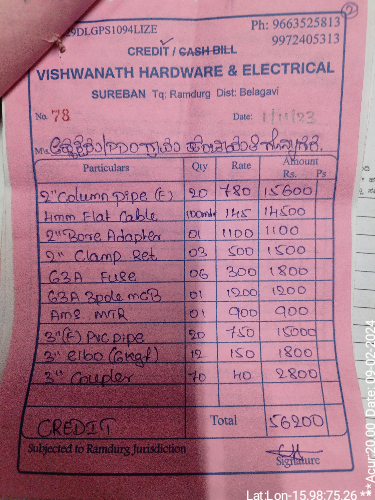 29DLGPS1094LIZE Ph: 9663525813
CREDIT / CASH BILL 9972405313
VISHWANATH HARDWARE & ELECTRICAL
SUREBAN Tq: Ramdurg Dist: Belagavi
No. 78 Date: 1/11/23
M/s
Particulars Qty Rate Amount
Rs. Ps
2" Column pipe (E) 20 780 15600
4mm Flat Cable 100mtr 145 14500
2" Bore Adapter 01 1100 1100
2" Clamp Set 03 500 1500
63A Fuse 06 300 1800
63A 3pole mCB 01 1200 1200
01 900 900
3" (E) PVC pipe 20 750 15000
3" elbo (6kgf) 12 150 1800
3" Coupler 70 40 2800
CREDIT Total 56200
Subjected to Ramdurg Jurisdiction Signature
Lat:Lon-15.98:75.26
***Acur:20.00 Date: 09-02-2024